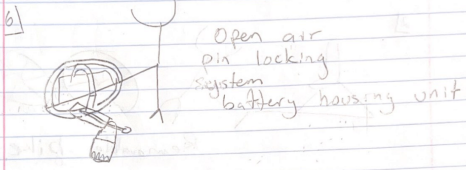 6
Open air
pin locking
system
battery housing unit